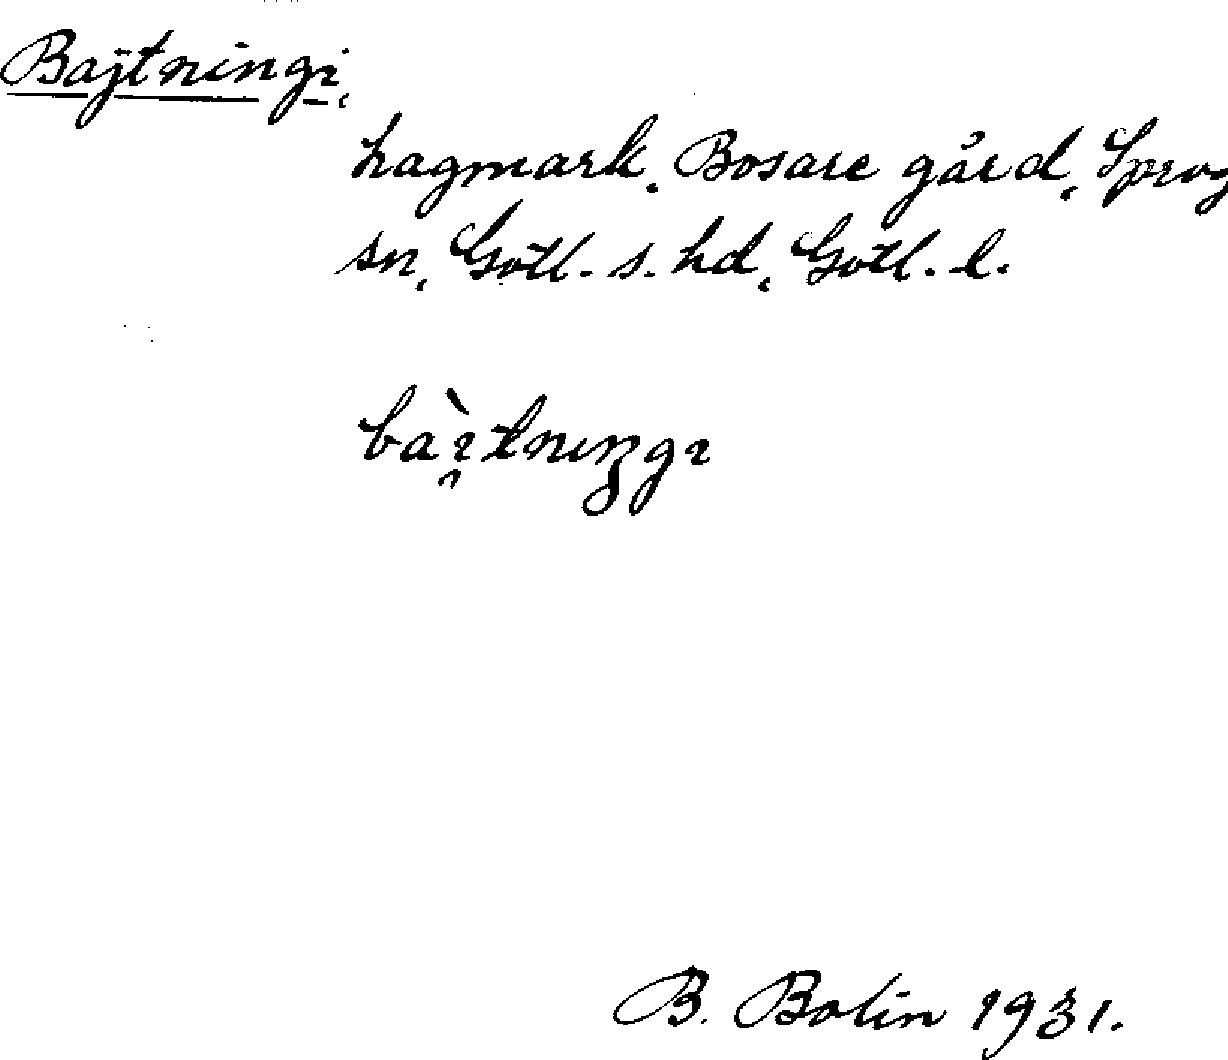 Bajtningi,
hagmark, Bosare gård, Sprog
sn, Gotl. s. hd, Gotl. l.
bàı̯tnıŋgı
B. Bolin 1931.